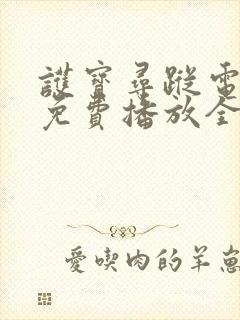 護寶尋蹤電
免費播放全
愛喫肉的羊